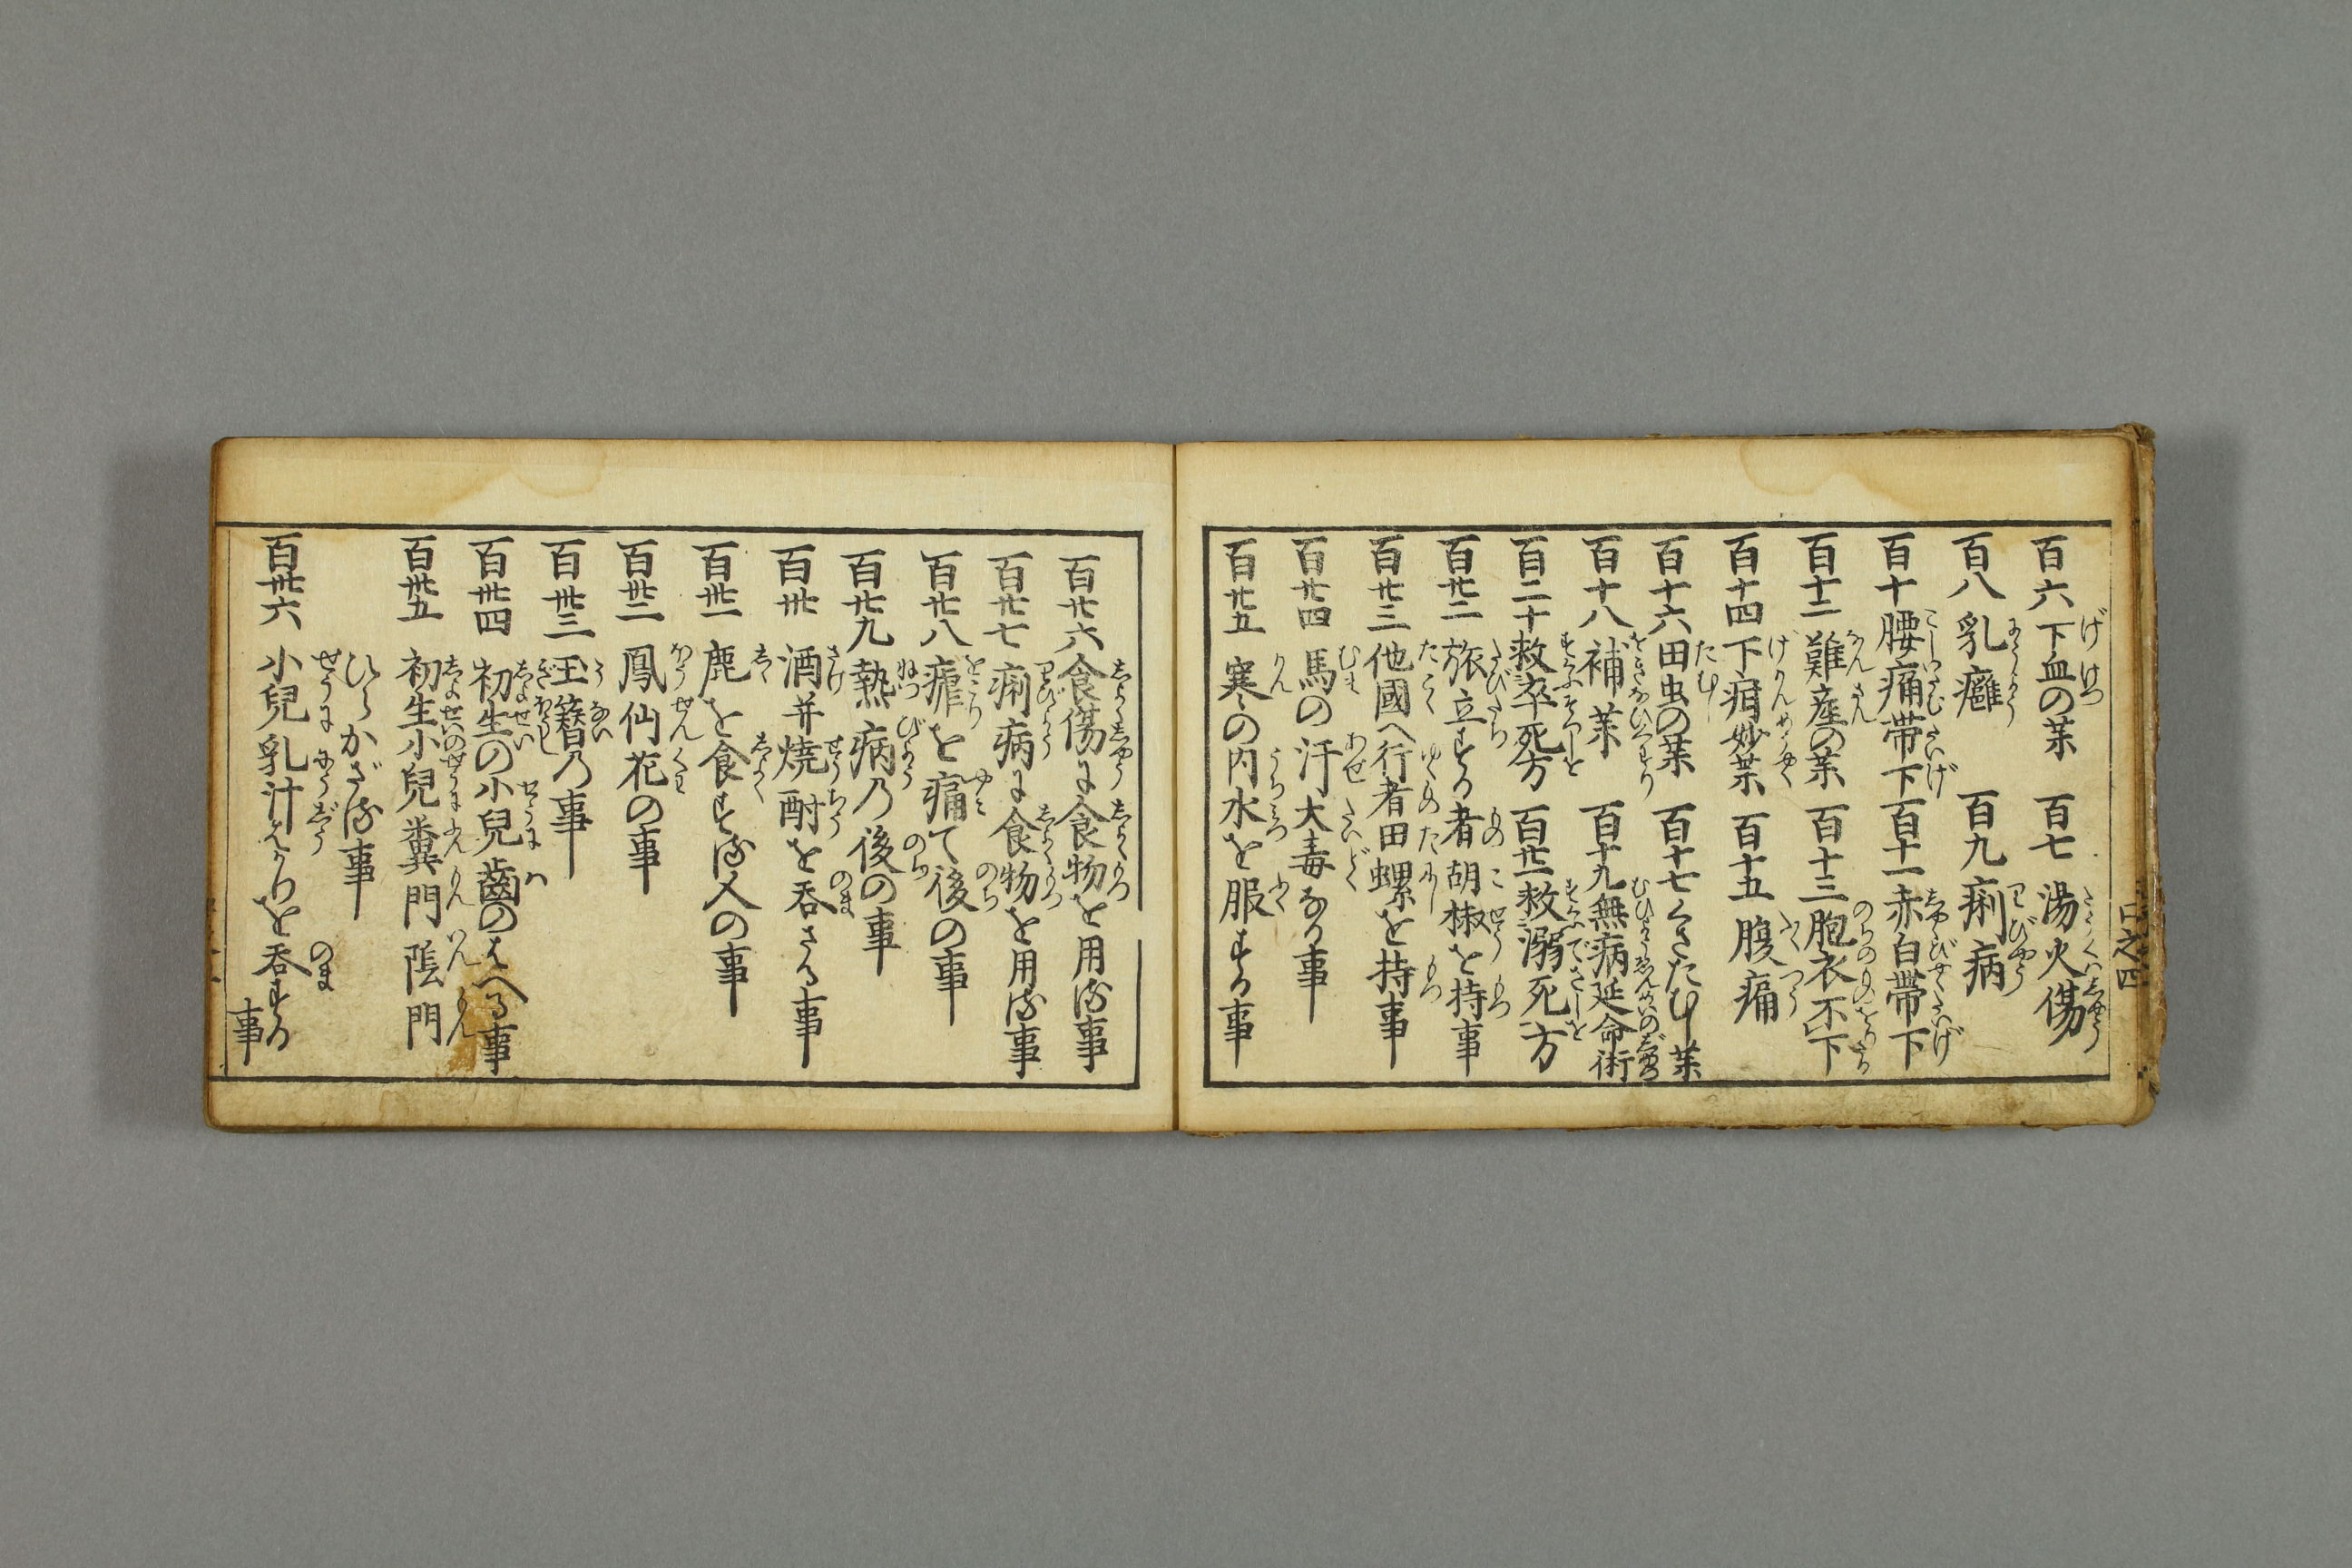 百六 下血の薬 百七 湯火傷
百八 乳癰 百九 痢病
百十 腰痛帯下 百十一 赤白帯下
百十二 難産の薬 百十三 胞衣不下
百十四 下疳妙薬 百十五 腹痛
百十六 田虫の薬 百十七 くさたむし薬
百十八 補薬 百十九 無病延命術
百二十 救卒死方 百廿一 救溺死方
百廿二 旅立する者胡椒を持事
百廿三 他國へ行者田螺を持事
百廿四 馬の汗大毒なる事
百廿五 寒の内水を服する事
百廿六 食傷に食物を用る事
百廿七 痢病に食物を用る事
百廿八 瘧を痛て後の事
百廿九 熱病乃後の事
百卅 酒并焼酎を呑さる事
百卅一 鹿を食する人の事
百卅二 鳳仙花の事
百卅三 玉簪乃事
百卅四 初生の小兒齒のはへる事
百卅五 初生小兒糞門陰門
ひらかざる事
百卅六 小兒乳汁ばかりを呑する
事